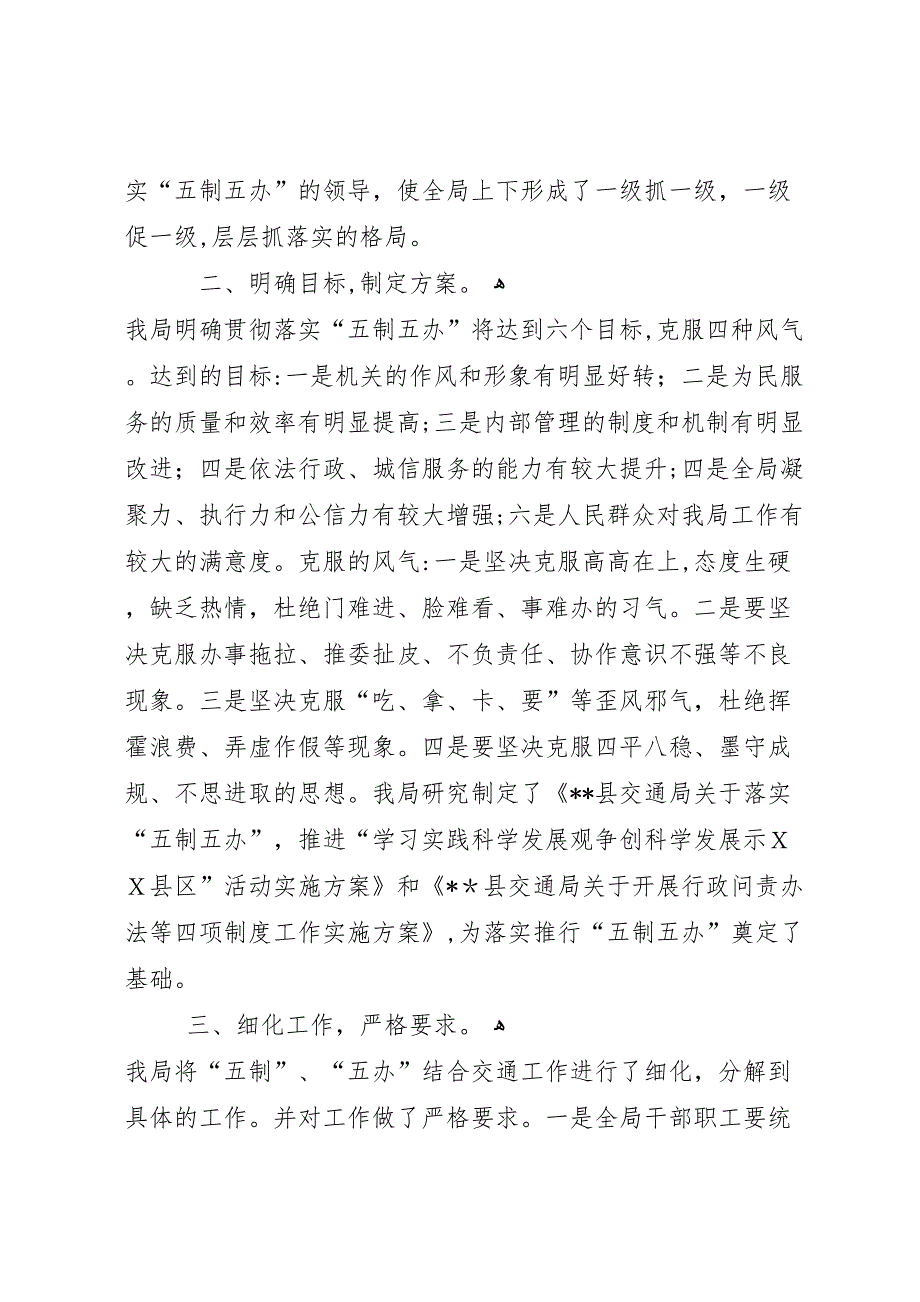 实“五制五办”的领导，使全局上下形成了一级抓一级，一级
促一级,层层抓落实的格局。
二、明确目标,制定方案。ﻫ
我局明确贯彻落实“五制五办”将达到六个目标,克服四种风气
。达到的目标:一是机关的作风和形象有明显好转；二是为民服
务的质量和效率有明显提高;三是内部管理的制度和机制有明显
改进；四是依法行政、城信服务的能力有较大提升;四是全局凝
聚力、执行力和公信力有较大增强;六是人民群众对我局工作有
较大的满意度。克服的风气:一是坚决克服高高在上,态度生硬
，缺乏热情，杜绝门难进、脸难看、事难办的习气。二是要坚
决克服办事拖拉、推委扯皮、不负责任、协作意识不强等不良
现象。三是坚决克服“吃、拿、卡、要”等歪风邪气，杜绝挥
霍浪费、弄虚作假等现象。四是要坚决克服四平八稳、墨守成
规、不思进取的思想。我局研究制定了《**县交通局关于落实
“五制五办”，推进“学习实践科学发展观争创科学发展示Ｘ
Ｘ县区”活动实施方案》和《*＊县交通局关于开展行政问责办
法等四项制度工作实施方案》,为落实推行“五制五办”奠定了
基础。
三、细化工作，严格要求。ﻫ
我局将“五制”、“五办”结合交通工作进行了细化，分解到
具体的工作。并对工作做了严格要求。一是全局干部职工要统